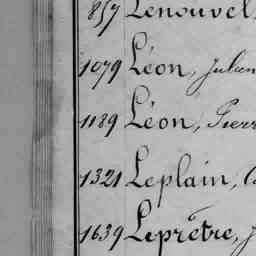 857 Lenouvel
1079 Léon, Julien
1189 Léon, Pierr
1321 Leplain,
1639 Leprêtre, J